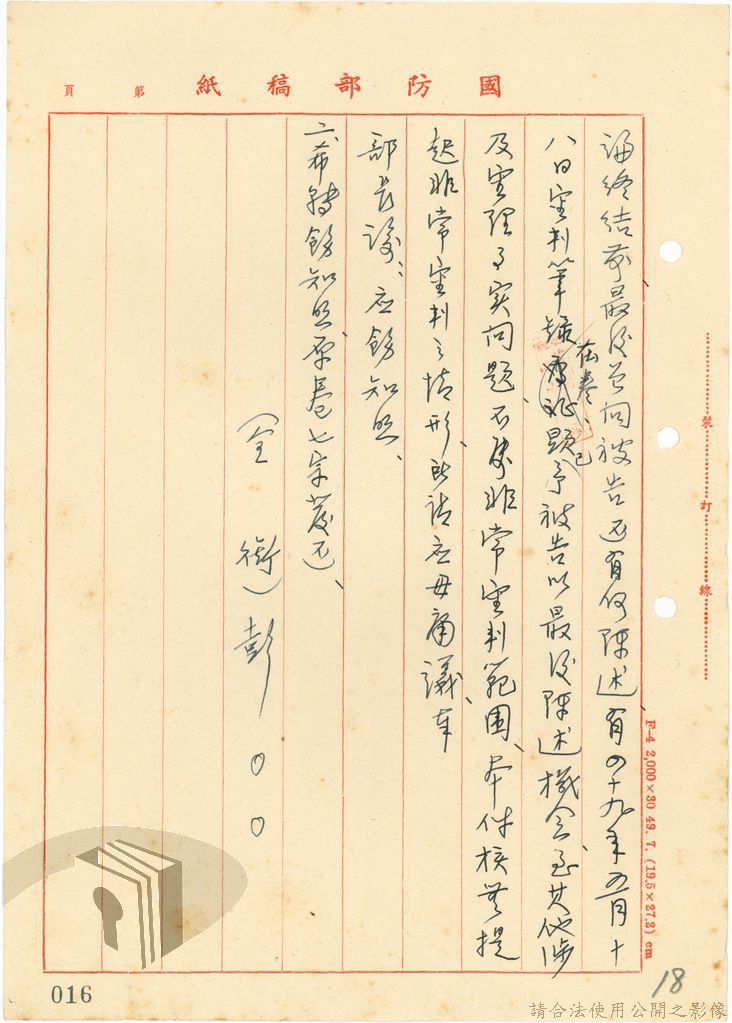 國防部稿紙
第
頁
論終結前最後並問被告還有何陳述、有四十九年五月十
八日審判筆錄在卷、已顯予被告以最後陳述機會、至其他涉
及實理事實問題、不屬非常審判範圍、本件核無提
起非常審判之情形、所請應毋庸議、奉
部長諭：應飭知照、
二、希轉飭知照、原卷七宗發還、
（全銜）彭○○
裝訂線
F-4 2,000×30 49. 7. (19.5×27.2) cm
016
18
請合法使用公開之影像